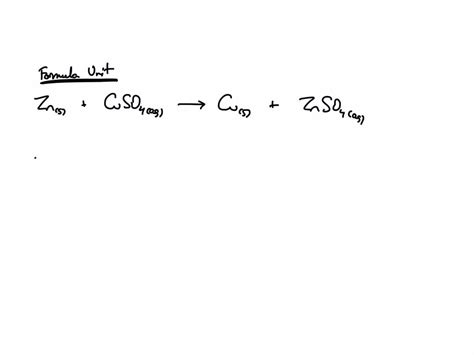 Formula Unit
Zn(s) + CuSO4(aq) → Cu(s) + ZnSO4(aq)